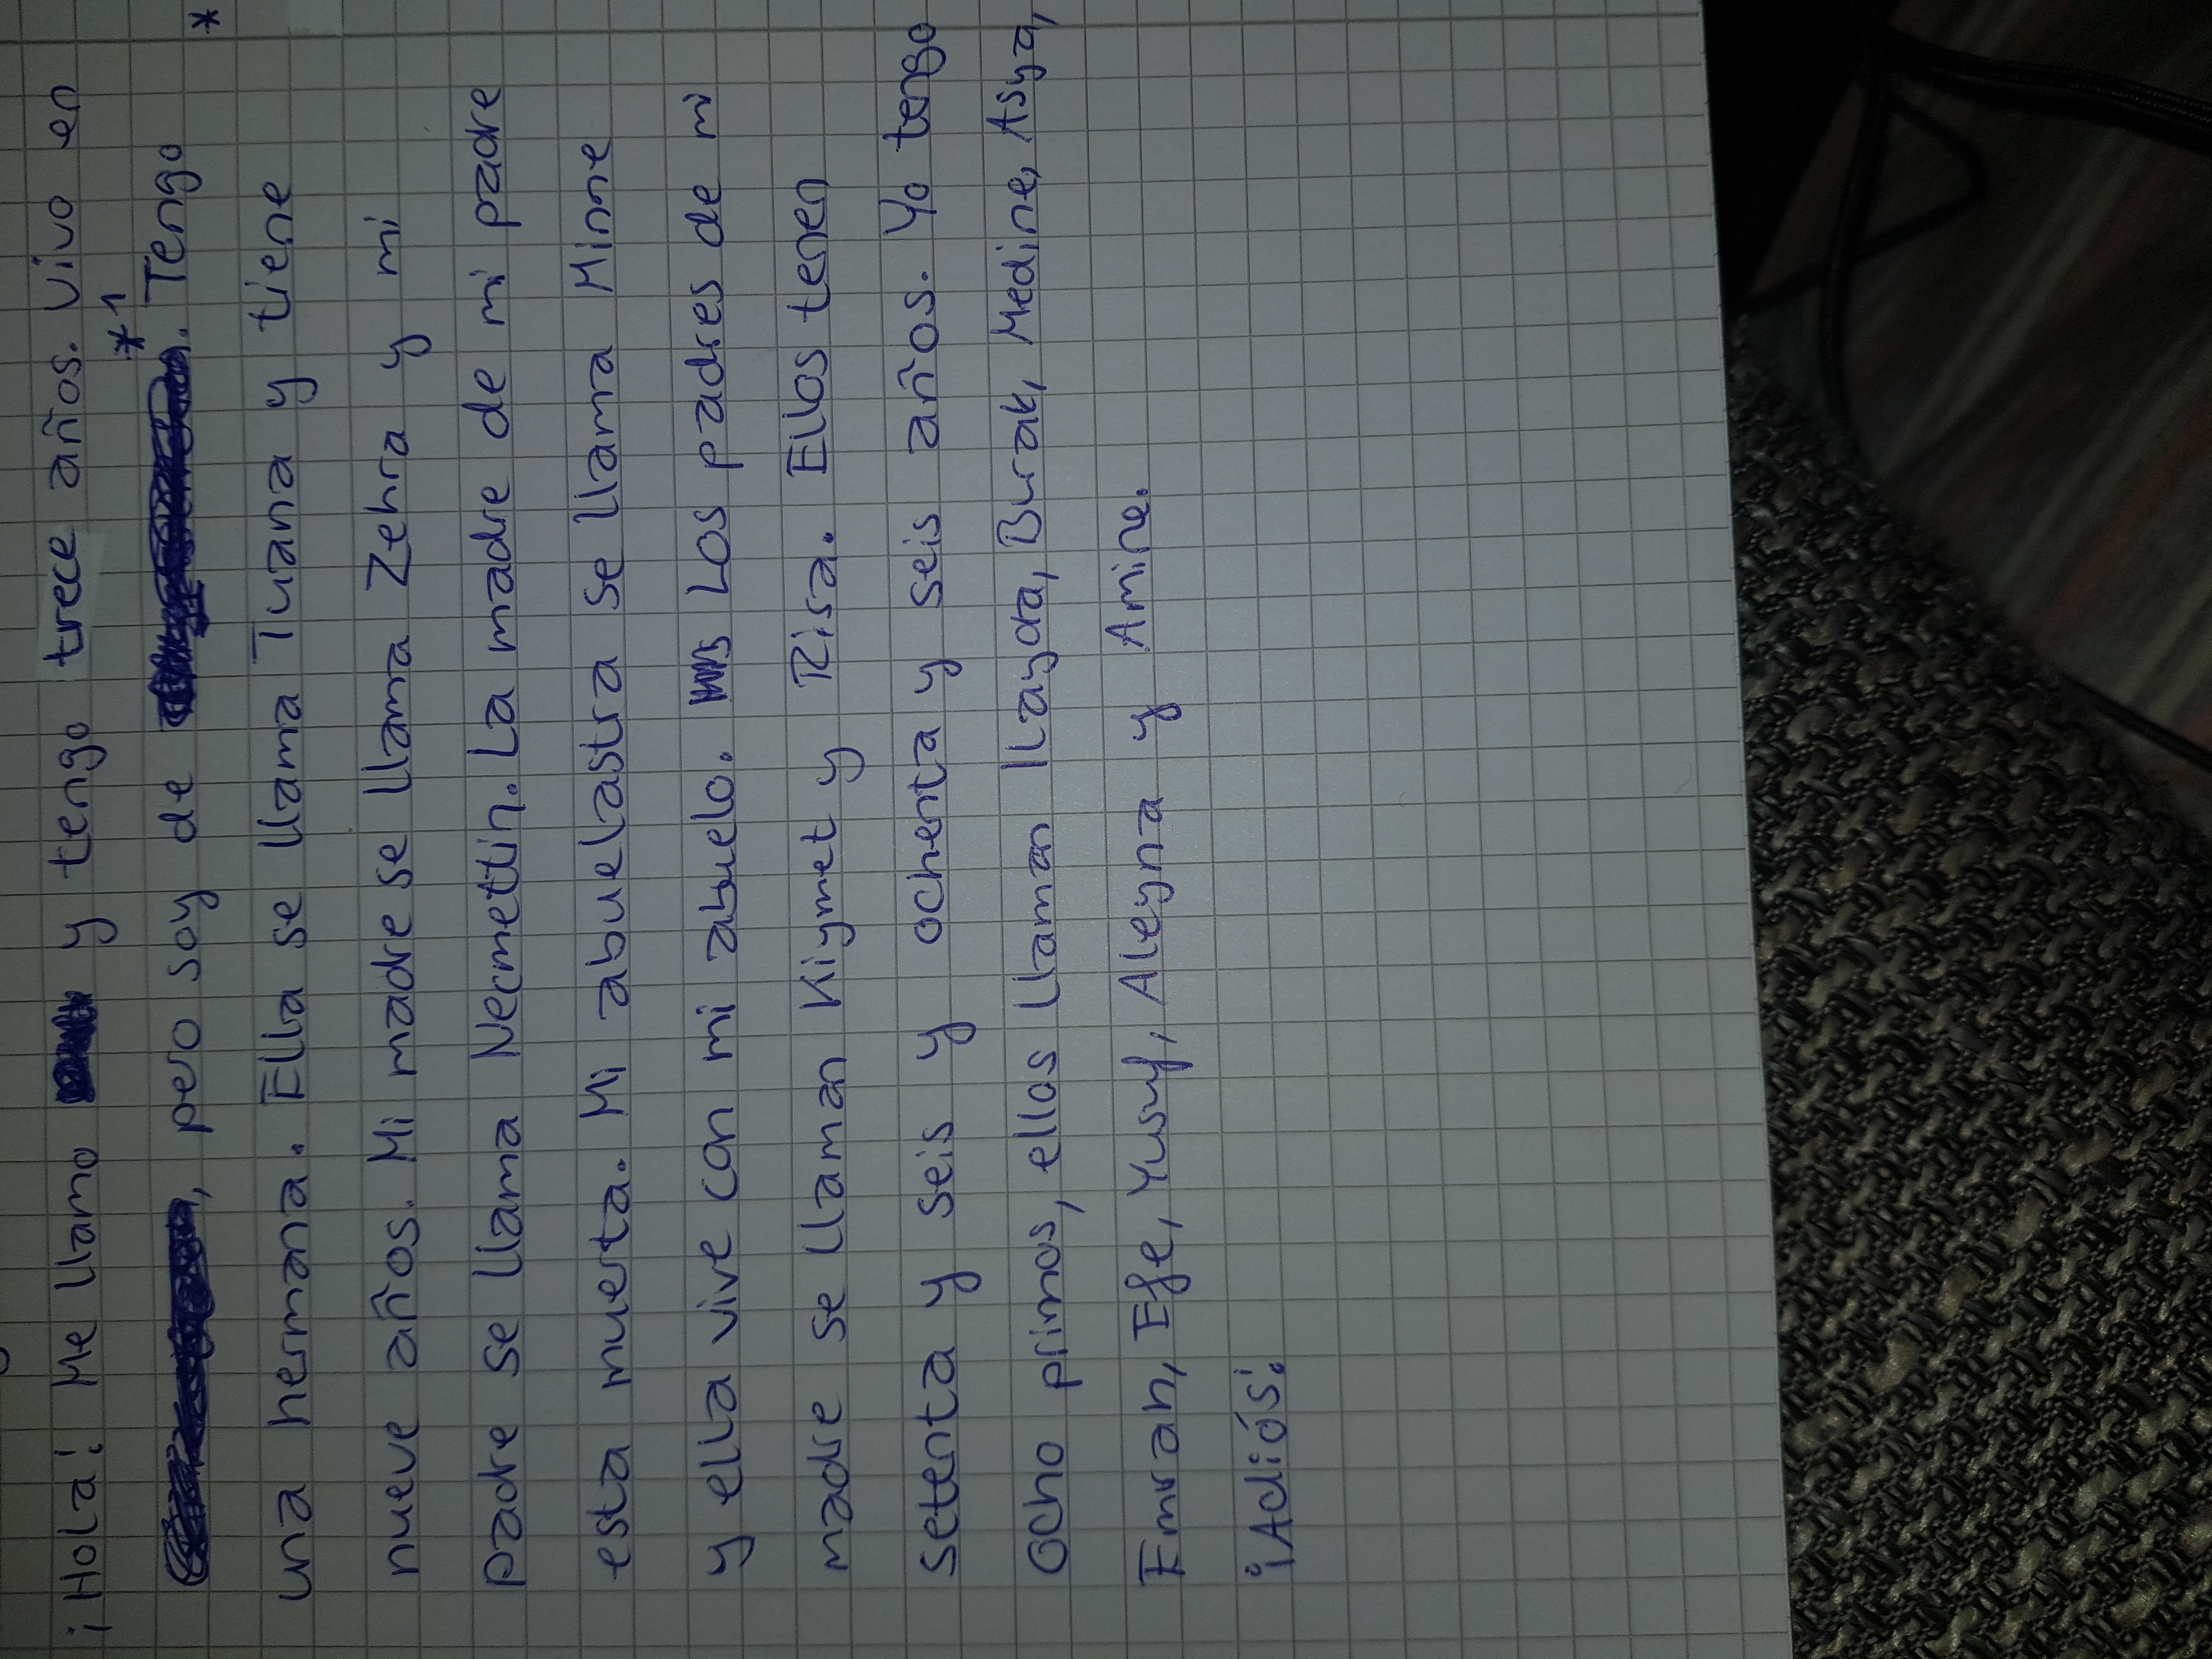 ¡Hola! Me llamo y tengo trece años. Vivo en
*1
, pero soy de . Tengo *
una hermana. Ella se llama Tuana y tiene
nueve años. Mi madre se llama Zehra y mi
padre se llama Necmettin. La madre de mi padre
esta muerta. Mi abuelastra se llama Minne
y ella vive con mi abuelo. Los padres de mi
madre se llaman Kiymet y Risa. Ellos tenen
setenta y seis y ochenta y seis años. Yo tengo
ocho primos, ellos llaman Ilayda, Burak, Medine, Asya,
Emrah, Efe, Yusuf, Aleyna y Amine.
¡Adiós!